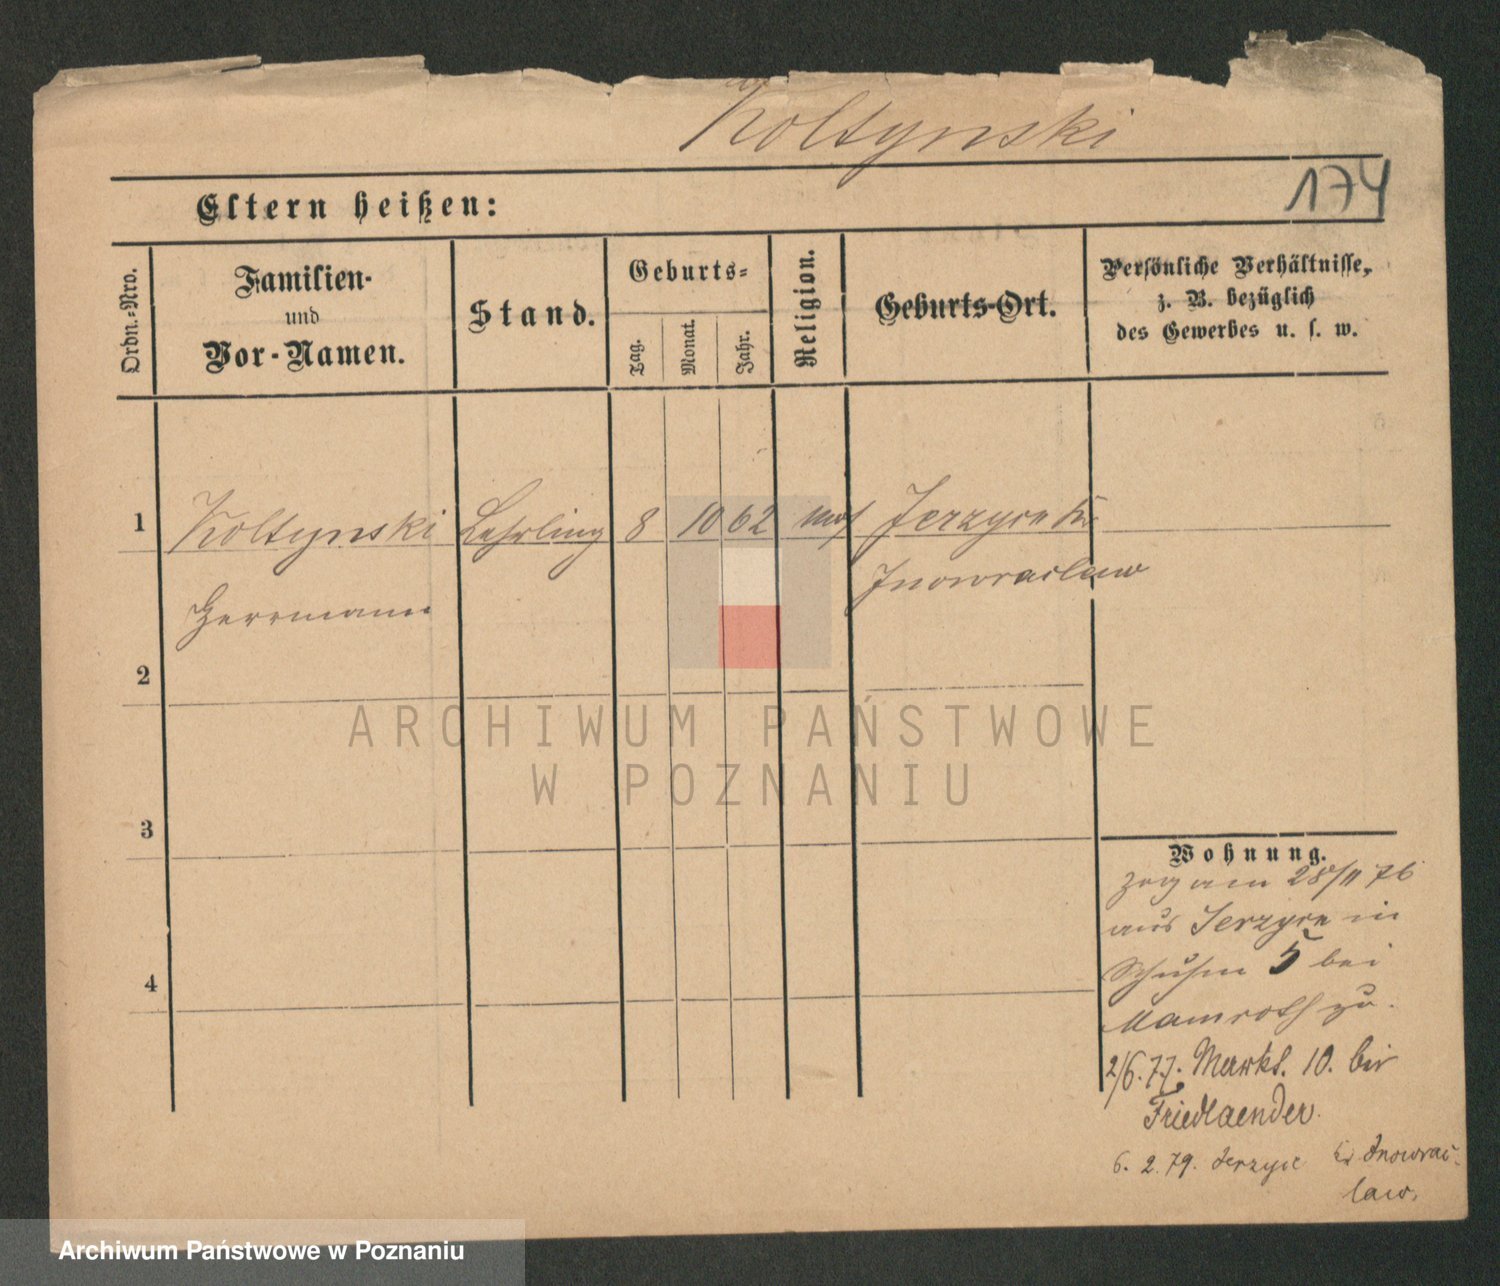 Koltynski
174
Eltern heißen:
Ordn.-Nro.
Familien-
und
Vor-Namen.
Stand.
Geburts-
Tag.
Monat.
Jahr.
Religion.
Geburts-Ort.
Persönliche Verhältnisse,
z. B. bezüglich
des Gewerbes u. s. w.
1
Koltynski Lehrling 8 10 62 mos Jerzyce Kr
Inowraclaw
Herrmann
2
ARCHIWUM PAŃSTWOWE
W POZNANIU
3
4
Wohnung.
zog am 28/11 76
aus Jerzyce in
5 bei
Mamroth zu.
2/6.77. Markt. 10. bei
Friedlaender.
6. 2. 79. Jerzyce Kr Inowrac-
law.
Archiwum Państwowe w Poznaniu